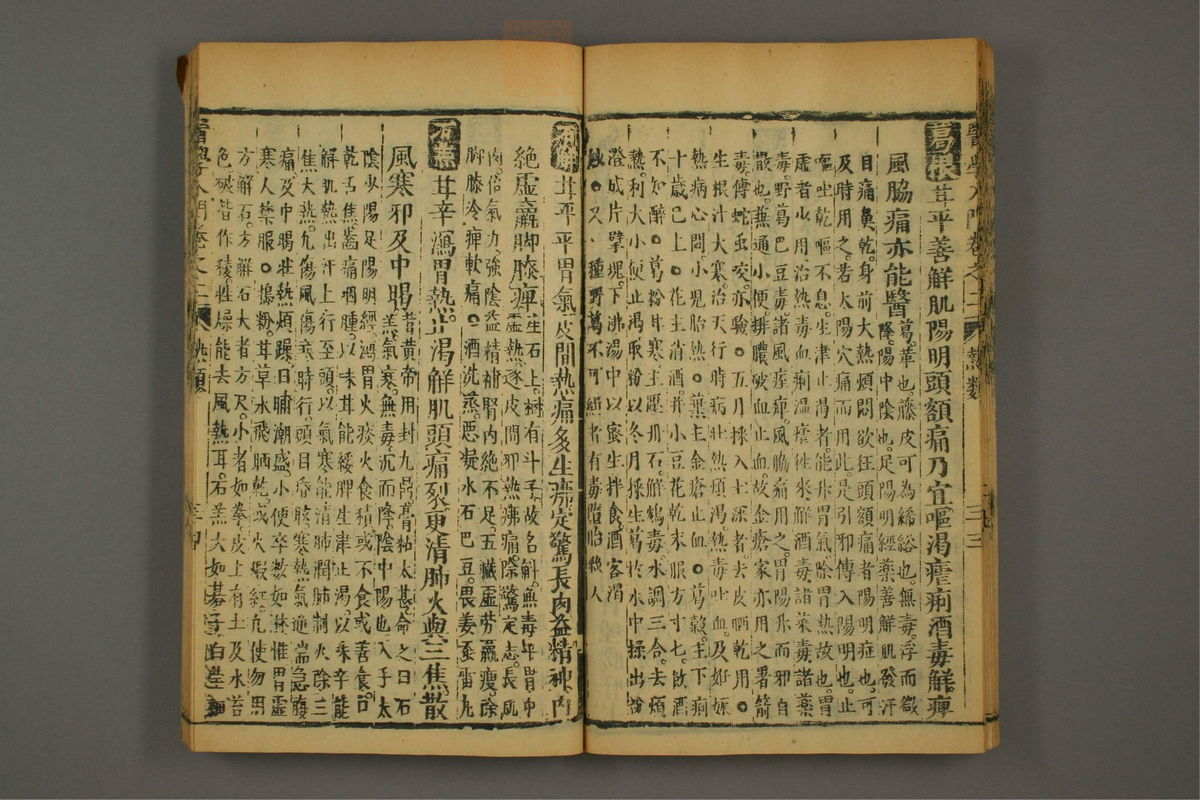 葛根 甘平善解肌陽明頭額痛乃宜嘔渴瘧痢酒毒解痺
風脇痛亦能醫 葛革也藤皮可為絺綌也無毒浮而微
降陽中陰也足陽明經藥善解肌發汗
目痛鼻乾身前大熱煩悶欲狂頭額痛者陽明症也可
及時用之若太陽穴痛而用此是引邪傳入陽明也止
嘔吐乾嘔不息生津止渴者能升胃氣除胃熱故也胃
虛者少用治熱毒血痢溫瘧往來解酒毒諸藥毒諸菜
毒野葛巴豆毒諸風痓痺風脇痛用之胃陽升而邪自
散也兼通小便排膿破血止血故金瘡家亦用之署箭
毒傅蛇虫咬亦驗○五月採入土深者去皮晒乾用○
生根汁大寒治天行時病壯熱煩渴熱毒吐血及妊娠
熱病心悶小兒胎熱○葉主金瘡止血○葛穀主下痢
十歲已上○花主消酒并小豆花乾末服方寸匕飲酒
不知醉○葛粉甘寒主壓丹石解鴆毒水調三合去煩
熱利大小便止渴取粉以冬月採生葛於水中揉出粉
澄成片擘塊下沸湯中以蜜生拌食酒客渴
妙○又一種野葛不可緝者有毒墮胎殺人
甘平平胃氣皮間熱痛多生痱定驚長肉益精神內
絕虛羸脚膝痺 生石上樹有斗子故名斛無毒平胃中
虛熱逐皮間邪熱痱痛除驚定志長肌
肉倍氣力強陰益精補腎內絕不足五臟虛勞羸瘦除
脚膝冷痺軟痛○酒洗蒸惡凝水石巴豆畏姜蚕雷丸
石羔 甘辛瀉胃熱止渴解肌頭痛裂更清肺火與三焦散
風寒邪及中暍 昔黃帝用封九鼎膏粘太甚命之曰石
羔氣寒無毒沉而降陰中陽也入手太
陰少陽足陽明經瀉胃火痰火食積或不食或善食口
乾舌焦齒痛咽腫以味甘能緩脾生津止渴以味辛能
解肌熱出汗上行至頭以氣寒能清肺潤肺制火除三
焦大熱凡傷風傷寒時行頭目昏眩寒熱氣逆喘急腹
痛及中暍壯熱煩躁日晡潮盛小便卒數如淋惟胃虛
寒人禁服○搗粉甘草水飛晒乾或火煅紅充使勿用
方解石方解石大者方尺小者如拳皮上有土及水苔
色破皆作稜性燥能去風熱耳石羔大如碁子白瑩細
醫學入門卷之二 熱類 三十三
醫學入門卷之二 熱類 三十四